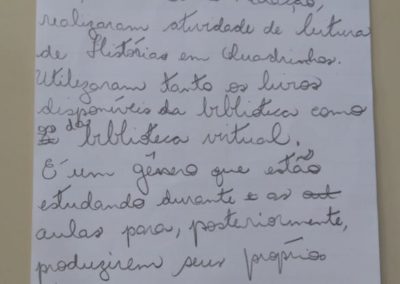 Redação,
realizaram atividade de leitura
de Histórias em Quadrinhos.
Utilizaram tanto os livros
disponíveis da biblioteca como
da biblioteca virtual.
É um gênero que estão
estudando durante as
aulas para, posteriormente,
produzirem seus próprios